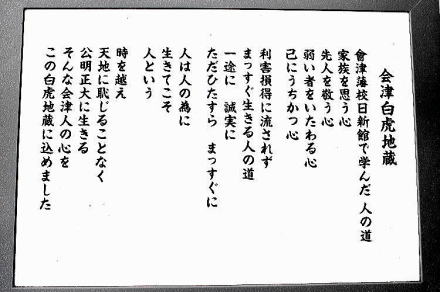 会津白虎地蔵
會津藩校日新館で学んだ 人の道
家族を思う心
先人を敬う心
弱い者をいたわる心
己にうちかつ心
利害損得に流されず
まっすぐ生きる人の道
一途に 誠実に
ただひたすら まっすぐに
人は人の為に
生きてこそ
人という
時を越え
天地に恥じることなく
公明正大に生きる
そんな会津人の心を
この白虎地蔵に込めました